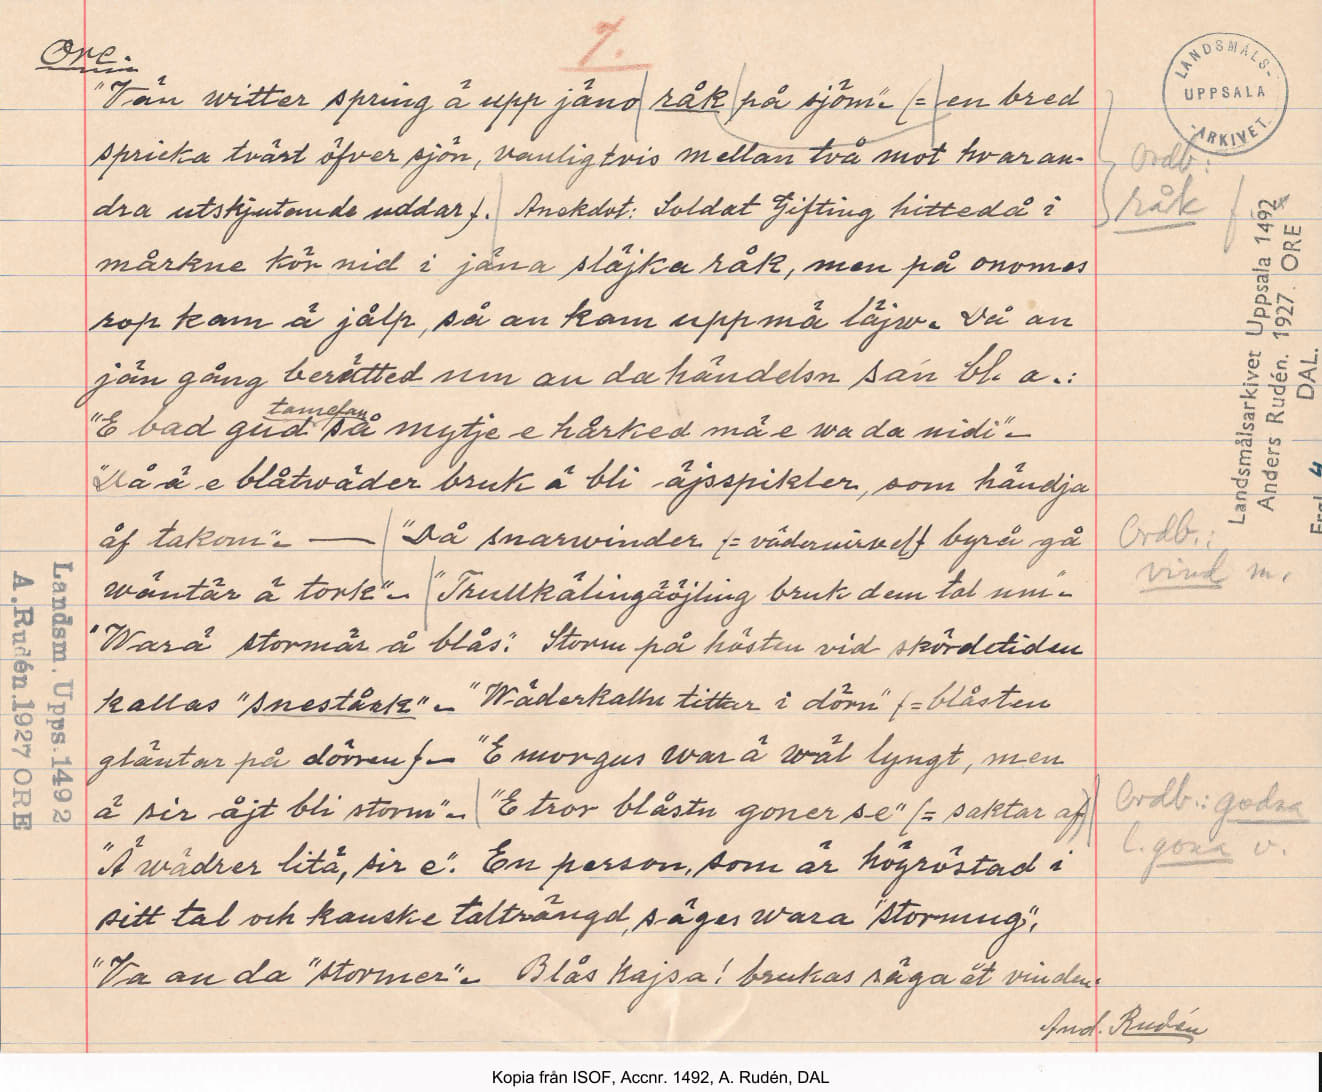 Ore.
7.
"Vån witter spring å upp jäno råk på sjöm". (= en bred
spricka tvärt öfver sjön, vanligtvis mellan två mot hvaran-
dra utskjutande uddar). Anekdot: Soldat Gifting hittedå i
mårkne kör nid i jäna släjka råk, men på onomes
rop kam å jålp, så an kam upp må läjw. Då an
jän gång berätted um an da händelsn sán bl. a.:
tamefan
"E bad gud så mytje e hårked må e wa da nidi".
"Då ä e blåtwäder bruk å bli äjsspikler, som händja
åf takom". — "Då snarwinder (= vädervirvel) byrå gå
wäntär å tork". "Trullkälingäöjling bruk dem tal um".
"Warå stormär å blås". Storm på hösten vid skördetiden
kallas "snestårk". "Wäderkalln tittar i dörn" (= blåsten
gläntar på dörren). "E morgus war å wäl lyngt, men
å sir åjt bli storm". "E tror blåstn goner se" (= saktar af)
"Å wädrer litä, sir e". En person, som är högröstad i
sitt tal och kanske talträngd, säges wara "stormug",
"Va an da "stormer". Blås Kajsa! brukas säga åt vinden.
And. Rudén
LANDSMÅLS-
UPPSALA
-ARKIVET.
Ordb.:
råk f
Landsmålsarkivet Uppsala 1492
Anders Rudén. 1927. ORE
DAL.
Ordb.:
vind m.
Ordb.: godna
l. gona v.
Landsm. Upps. 1492
A. Rudén. 1927 ORE
Kopia från ISOF, Accnr. 1492, A. Rudén, DAL